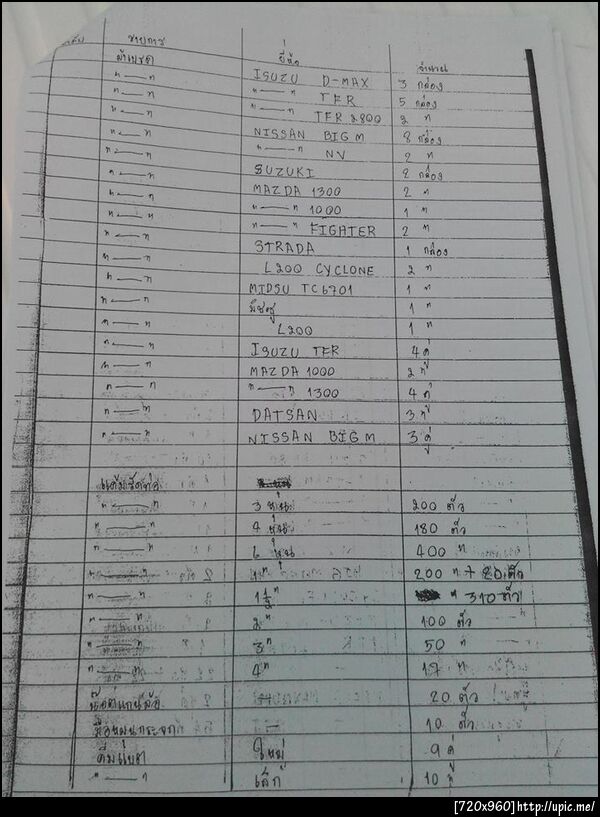 รายการ ยี่ห้อ จำนวน
ผ้าเบรค ISUZU D-MAX 3 กล่อง
"—" "—" TFR 5 กล่อง
"—" "—" TFR 2800 2 "
"—" NISSAN BIG M 8 กล่อง
"—" "—" NV 2 "
"—" SUZUKI 2 กล่อง
"—" MAZDA 1300 2 "
"—" "—" 1000 1 "
"—" "—" FIGHTER 2 "
"—" STRADA 1 กล่อง
"—" L200 CYCLONE 2 "
"—" MIDSU TC6701 1 "
"—" มิตซู 1 "
"—" L200 1 "
"—" ISUZU TFR 4 คู่
"—" MAZDA 1000 2 "
"—" "—" 1300 4 คู่
"—" DATSAN 3 "
"—" NISSAN BIG M 3 คู่
3 หุน 200 ตัว
"—" 4 หุน 180 ตัว
"—" 6 หุน 400 "
"—" 1" 200 " + 80 ตัว
"—" 1 1/2" " 310 ตัว
"—" 2" 100 ตัว
"—" 3" 50 "
"—" 4" 17 "
20 ตัว
10 ตัว
ใหญ่ 9 คู่
"—" เล็ก 10 คู่
[720x960] http://upic.me/